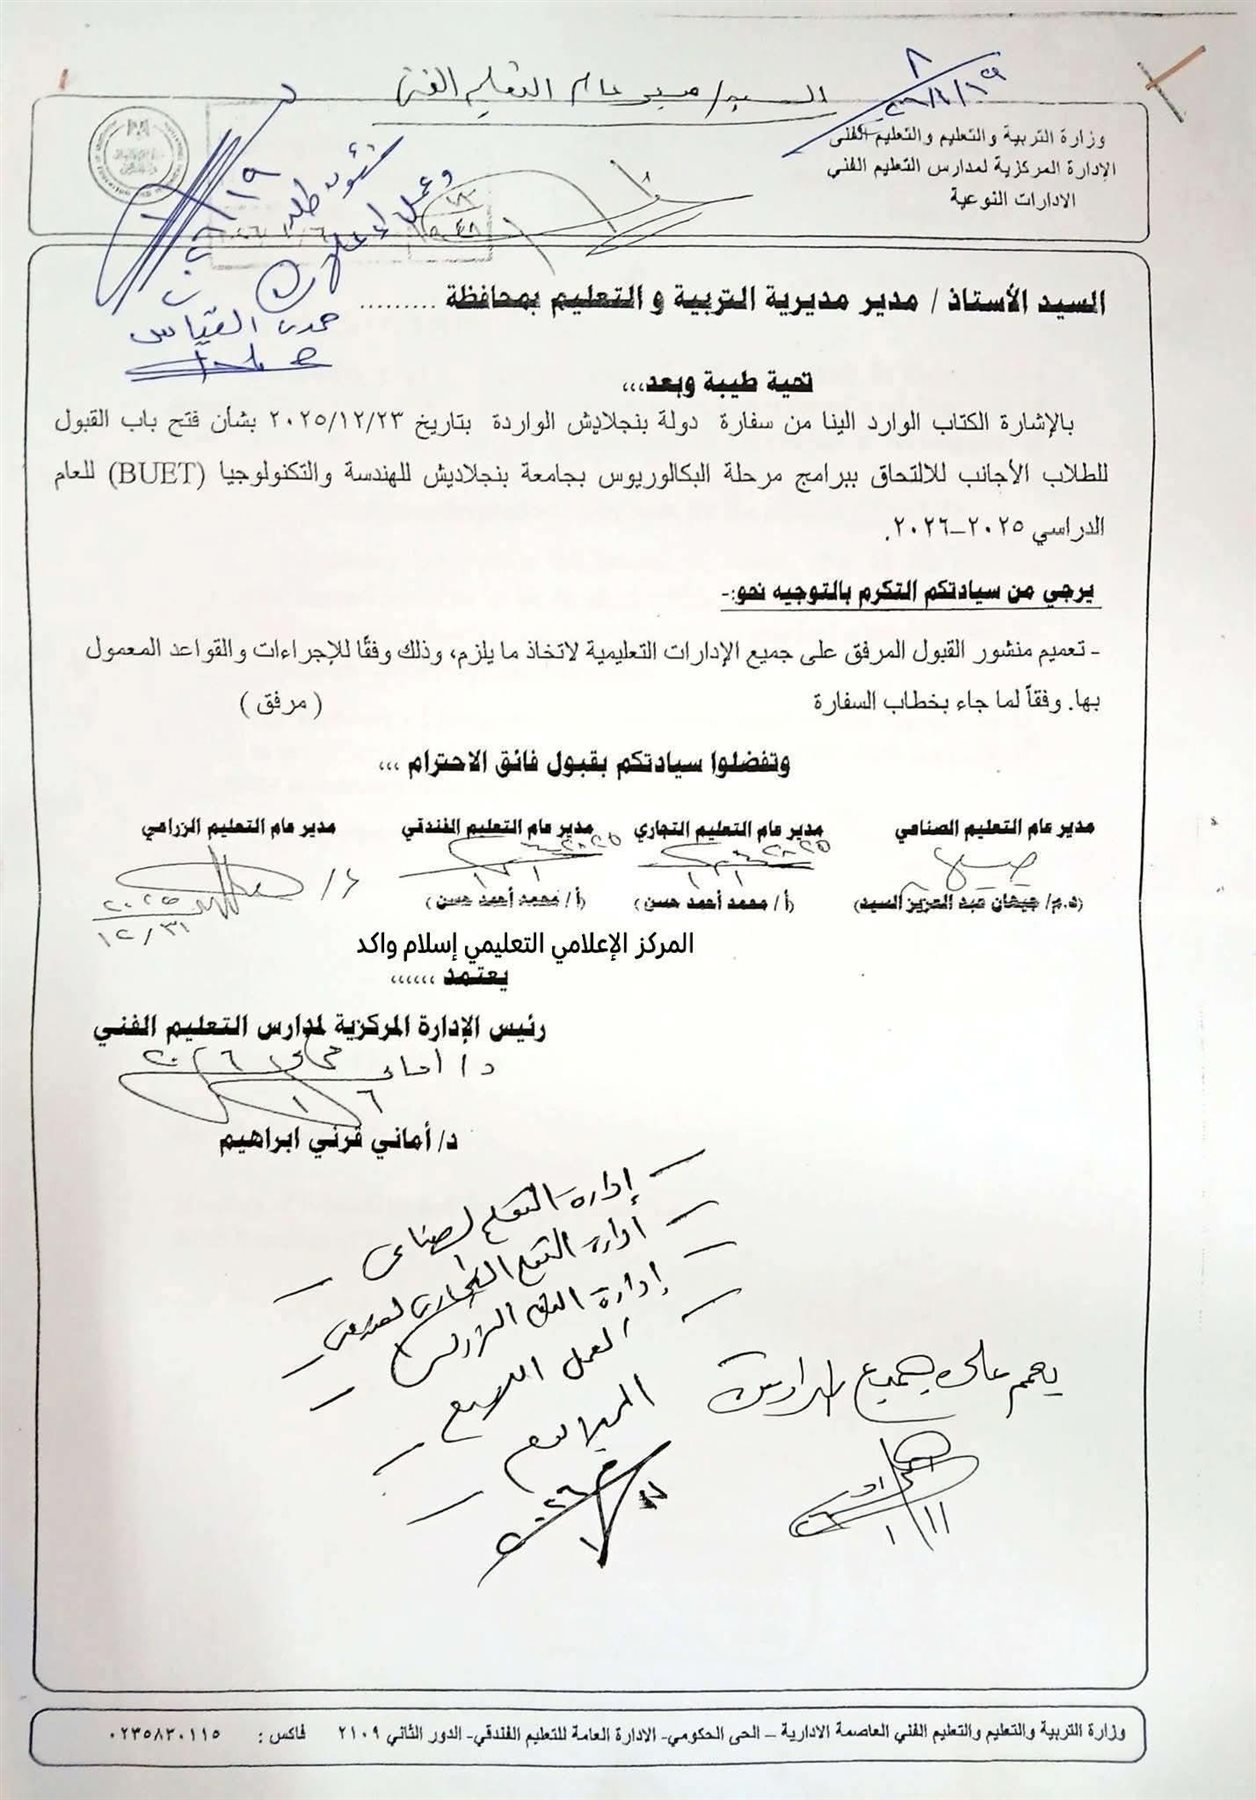 السيد/ مدير عام التعليم الفنى
وزارة التربية والتعليم والتعليم الفنى
الإدارة المركزية لمدارس التعليم الفني
الادارات النوعية
شئون طلبة
وعمل إعلان
السيد الأستاذ / مدير مديرية التربية و التعليم بمحافظة .........
تحية طيبة وبعد،،،
بالإشارة الكتاب الوارد الينا من سفارة دولة بنجلادِش الواردة بتاريخ ٢٠٢٥/١٢/٢٣ بشأن فتح باب القبول
للطلاب الأجانب للالتحاق ببرامج مرحلة البكالوريوس بجامعة بنجلاديش للهندسة والتكنولوجيا (BUET) للعام
الدراسي ٢٠٢٥–٢٠٢٦.
يرجي من سيادتكم التكرم بالتوجيه نحو:-
- تعميم منشور القبول المرفق على جميع الإدارات التعليمية لاتخاذ ما يلزم، وذلك وفقًا للإجراءات والقواعد المعمول
بها. وفقاً لما جاء بخطاب السفارة ( مرفق )
وتفضلوا سيادتكم بقبول فائق الاحترام ،،،
مدير عام التعليم الصناعي مدير عام التعليم التجاري مدير عام التعليم الفندقي مدير عام التعليم الزراعي
(د.م/ جيهان عبد العزيز السيد) (أ / محمد أحمد حسن ) (أ / محمد أحمد حسن )
٢٠٢٥
١٢/٣١
المركز الإعلامي التعليمي إسلام واكد
يعتمد ،،،،،،
رئيس الإدارة المركزية لمدارس التعليم الفني
د/ أماني قرني ابراهيم
- إدارة التعليم الصناعى -
- إدارة التعليم التجارى الفندقى -
يعمم على جميع المدارس
وزارة التربية والتعليم والتعليم الفني العاصمة الادارية – الحى الحكومي- الادارة العامة للتعليم الفندقي- الدور الثاني ٢١٠٩ فاكس : ٠٢٣٥٨٣٠١١٥